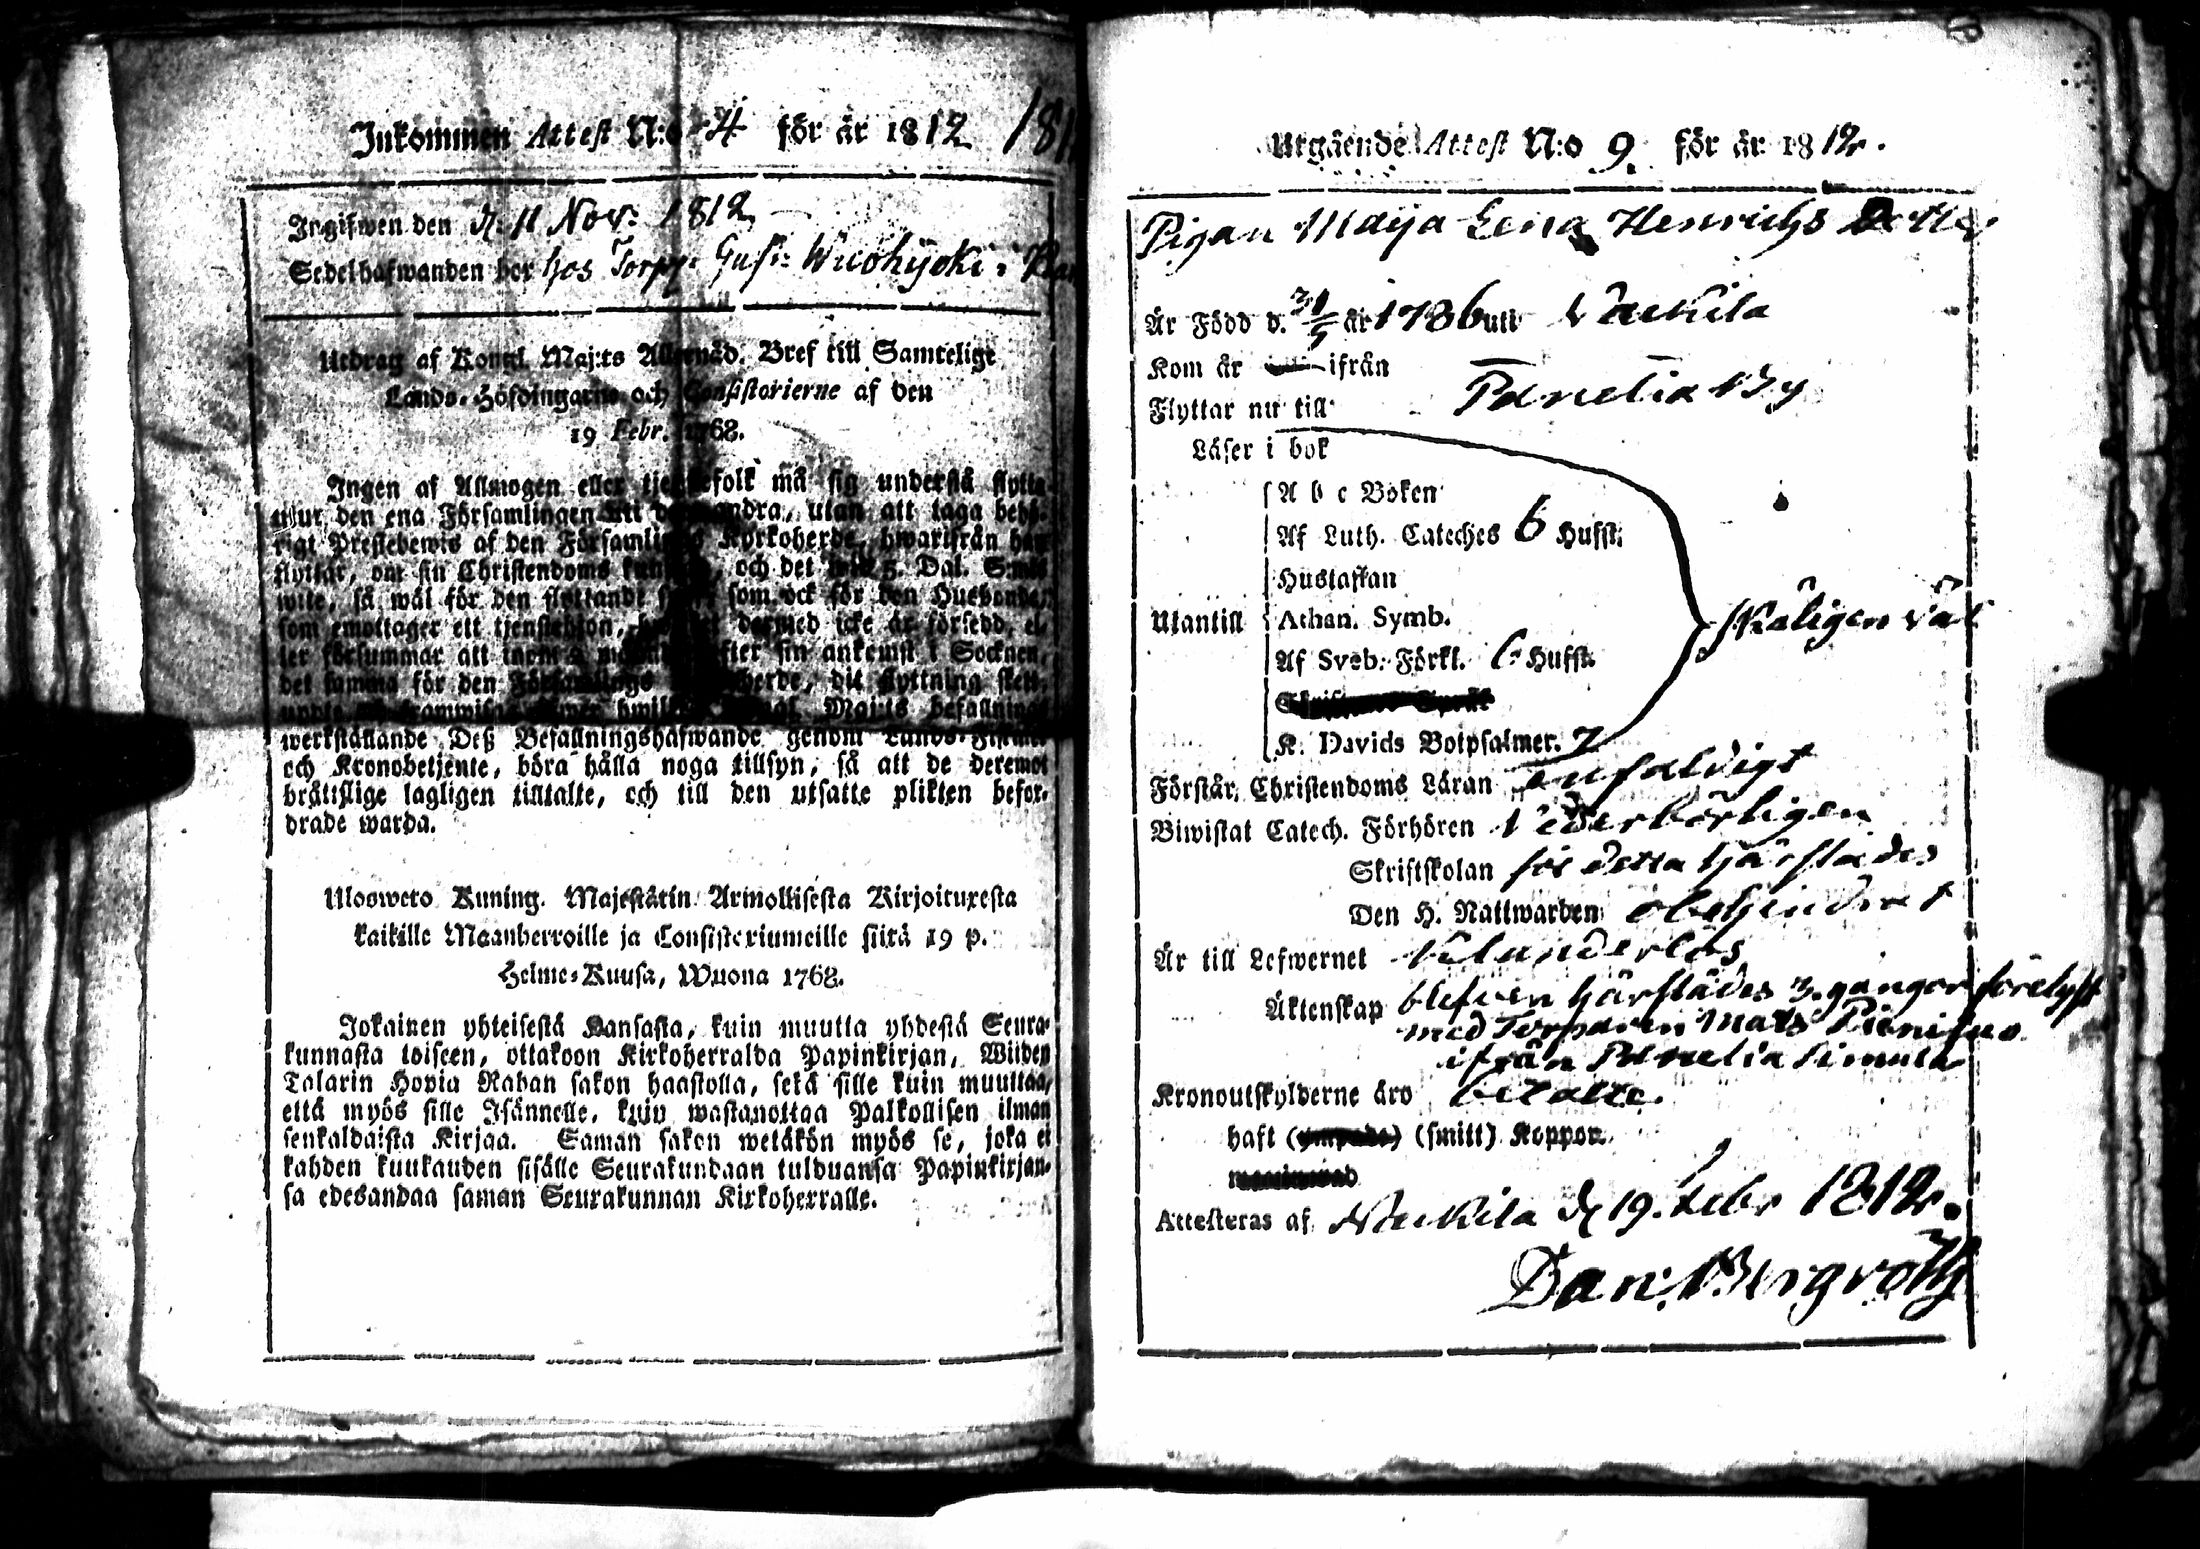 Inkommen Attest N:o 4 för år 1812
Ingifwen den d. 11 Nov: 1812
Sedelhafwanden bor hos Torp: Gust: Wuohijoki i
Utdrag af Kongl. Maj:ts Allernåd. Bref till Samtelige
Lands-Höfdingarne och Consistorierne af den
19 Febr. 1768.
Ingen af Allmogen eller tjenstefolk må sig understå flytta
utur den ena Församlingen till den andra, utan att taga behö-
rigt Prestebewis af den Församlings Kyrkoherde, hwarifrån han
flyttar, om sin Christendoms kunskap, och det wid 5. Dal. S:mts
wite, så wäl för den flyttande sjelf, som ock för den Husbonde,
som emottager ett tjenstehjon, hwilket dermed icke är försedd, el-
ler försummar att inom 2 månader efter sin ankomst i Socknen,
det samma för den Församlings Kyrkoherde, dit flyttning sker,
upte och framwisa; öfwer hwilken Kongl. Maj:ts befallnings
werkställande Deß Befallningshafwande genom Lands-Fiskaler
och Kronobetjente, böra hålla noga tillsyn, så att de deremot
bråttslige lagligen tilltalte, och till den utsatte plikten befor-
drade warda.
Ulosweto Kuning. Majestätin Armollisesta Kirjoituxesta
kaikille Maanherroille ja Consistoriumeille siitä 19 p.
Helme-Kuusa, Wuona 1768.
Jokainen yhteisestä Kansasta, kuin muutta yhdestä Seura-
kunnasta toiseen, ottakoon Kirkoherralda Papinkirjan, Wiiden
Talarin Hopia Rahan sakon haastolla, sekä sille kuin muuttaa,
että myös sille Isännelle, kuin wastanottaa Palkollisen ilman
senkaldaista Kirjaa. Saman sakon wetäkön myös se, joka ei
kahden kuukauden sisälle Seurakundaan tulduansa Papinkirjan-
sa edesandaa saman Seurakunnan Kirkoherralle.
Utgående Attest N:o 9. för år 1812.
Pigan Maija Lena Henrichs Dotter
Är Född d. 31/5 år 1786 uti
Kom år ifrån
Flyttar nu till Panelia By
Läser i bok
A b c Boken
Af Luth. Cateches 6 Hufst:
Hustaflan
Utantill Athan. Symb. skäligen väl
Af Sveb. Förkl. 6 Hufst.
K. Davids Botpsalmer. 7
Förstår Christendoms Läran enfaldigt
Biwistat Catech. Förhören vederbörligen
Skriftskolan för detta härstädes
Den H. Nattwarden obehindrat
Är till Lefwernet klanderlös
Äktenskap blefven härstädes 3. gångor förelyst
med Torparen Mats
ifrån Panelia Simula
Kronoutskylderne äro betalte.
haft (smitt) Koppor.
Attesteras af d. 19. Febr 1812.
Dan: Bergroth